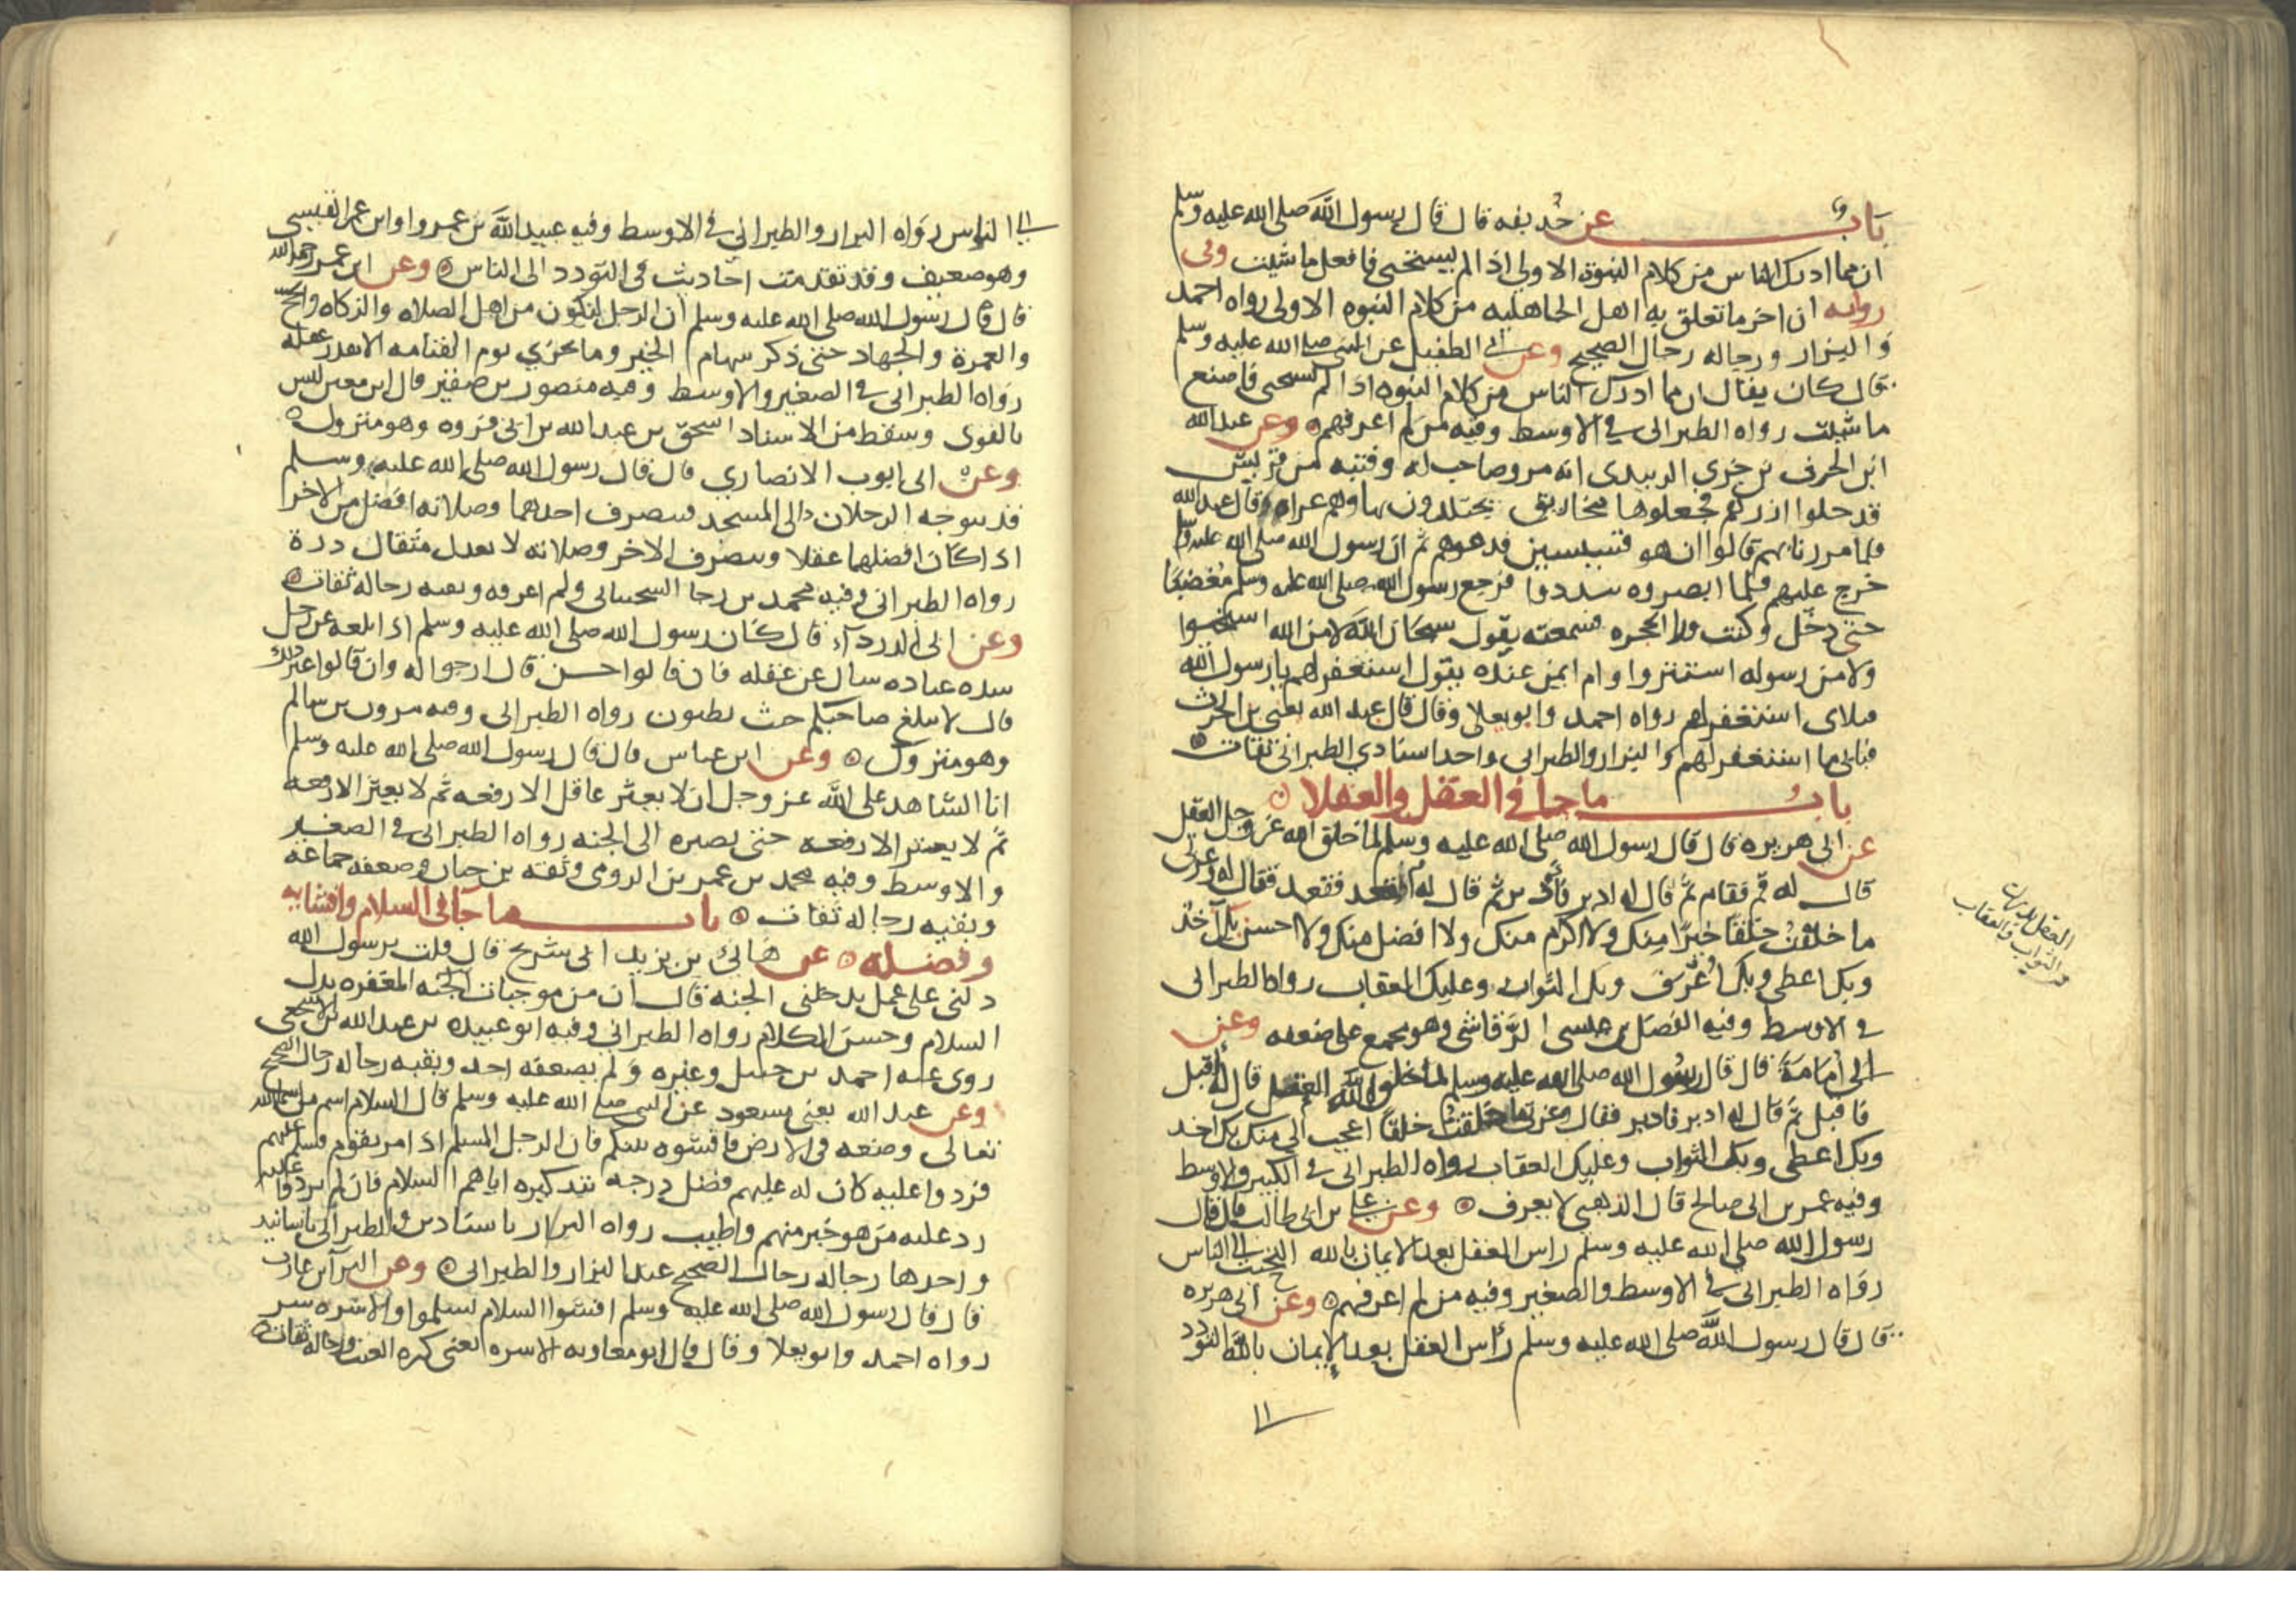 باب عن حذيفه قال قال رسول الله صلى الله عليه وسلم
ان مما ادرك الناس من كلام النبوة الاولى اذا لم تستحى فافعل ما شيت وفى
روايه ان اخر ما تعلق به اهل الجاهليه من كلام النبوه الاولى رواه احمد
والبزار ورجاله رجال الصحيح وعن ابى الطفيل عن النبى صلى الله عليه وسلم
قال كان يقال ان مما ادرك الناس من كلام النبوه اذا لم تستحى فاصنع
ما شيت رواه الطبرانى فى الاوسط وفيه من لم اعرفهم وعن عبد الله
ابن الحرث بن جزى الزبيدى انه مر وصاحب له وفتيه من قريش
قد حلوا ازرهم فجعلوها مخاريق يجتلدون بها وهم عراه قال عبد الله
فلما مررنا بهم قالوا ان هو قسيسين فدعوهم ثم ان رسول الله صلى الله عليه وسلم
خرج عليهم فلما ابصروه تبددوا فرجع رسول الله صلى الله عليه وسلم مغضبا
حتى دخل وكنت ورا الحجره فسمعته يقول سبحان الله لا من الله استحيوا
ولا من رسوله استتروا وام ايمن عنده تقول استغفر لهم يا رسول الله
فبلاى استغفر لهم رواه احمد وابو يعلى وقال قال عبد الله يعنى بن الحرث
فبلاى ما استغفر لهم والبزار والطبرانى واحد اسنادي الطبرانى ثقات
باب ما جا فى العقل والعقلا
عن ابى هريره قال قال رسول الله صلى الله عليه وسلم لما خلق الله عز وجل العقل
قال له قم فقام ثم قال له ادبر فادبر ثم قال له اقعد فقعد فقال له وعزتى
ما خلقت خلقا خيرا منك ولا اكرم منك ولا افضل منك ولا احسن بك آخذ
وبك اعطى وبك اعرف وبك الثواب وعليك العقاب رواه الطبرانى
فى الاوسط وفيه الفضل بن عيسى الرقاشى وهو مجمع على ضعفه وعن
ابى امامة قال قال رسول الله صلى الله عليه وسلم لما خلق الله العقل قال له اقبل
فاقبل ثم قال له ادبر فادبر فقال وعزتى ما خلقت خلقا اعجب الى منك بك اخذ
وبك اعطى وبك الثواب وعليك العقاب رواه الطبرانى فى الكبير والاوسط
وفيه عمر بن ابى صالح قال الذهبى لا يعرف وعن على بن ابى طالب قال قال
رسول الله صلى الله عليه وسلم راس العقل بعد الايمان بالله التحبب الى الناس
رواه الطبرانى فى الاوسط والصغير وفيه من لم اعرفهم وعن ابى هريره
قال قال رسول الله صلى الله عليه وسلم رأس العقل بعد الإيمان بالله التودد
الى
العقل بك
الثواب والعقاب
الى الناس رواه البزار والطبرانى فى الاوسط وفيه عبيد الله بن عمرو او ابن عمر القيسى
وهو ضعيف وقد تقدمت احاديث فى التودد الى الناس وعن ابن عمر رحمه الله
قال قال رسول الله صلى الله عليه وسلم ان الرجل ليكون من اهل الصلاه والزكاه والحج
والعمرة والجهاد حتى ذكر سهام الخير وما يجزي يوم القيامه الا بقدر عقله
رواه الطبرانى فى الصغير والاوسط وفيه منصور بن صقير قال ابن معين ليس
بالقوى وسقط من الاسناد اسحق بن عبد الله بن ابى فروه وهو متروك
وعن ابى ايوب الانصاري قال قال رسول الله صلى الله عليه وسلم
قد يتوجه الرجلان الى المسجد فينصرف احدهما وصلاته افضل من الاخر
اذا كان افضلهما عقلا وينصرف الاخر وصلاته لا تعدل مثقال ذرة
رواه الطبرانى وفيه محمد بن رجا السختيانى ولم اعرفه وبقيه رجاله ثقات
وعن ابى الدرداء قال كان رسول الله صلى الله عليه وسلم اذا بلغه عن رجل
شده عباده سال عن عقله فان قالوا حسن قال ارجوا له وان قالوا غير ذلك
قال لا يبلغ صاحبكم حيث تظنون رواه الطبرانى وفيه مروان بن سالم
وهو متروك وعن ابن عباس قال قال رسول الله صلى الله عليه وسلم
انا الشاهد على الله عز وجل ان لا يعثر عاقل الا رفعه ثم لا يعثر الا رفعه
ثم لا يعثر الا رفعه حتى يصيره الى الجنه رواه الطبرانى فى الصغير
والاوسط وفيه محمد بن عمر بن الرومى وثقه بن حبان وضعفه جماعة
وبقيه رجاله ثقات باب ما جا فى السلام وافشايه
وفضله عن هانئ بن يزيد ابى شريح قال قلت يرسول الله
دلنى على عمل يدخلنى الجنه قال ان من موجبات الجنه المغفره بذل
السلام وحسن الكلام رواه الطبرانى وفيه ابو عبيده بن عبد الله الاشجعى
روى عنه احمد بن حنبل وغيره ولم يضعفه احد وبقيه رجاله رجال الصحيح
وعن عبد الله يعنى بن مسعود عن النبى صلى الله عليه وسلم قال السلام اسم من اسما الله
تعالى وضعه فى الارض فافشوه بينكم فان الرجل المسلم اذا مر بقوم فسلم عليهم
فردوا عليه كان له عليهم فضل درجه بتذكيره اياهم السلام فان لم يردوا عليه
رد عليه من هو خير منهم واطيب رواه البزار باسنادين والطبرانى باسانيد
واحدها رجاله رجال الصحيح عند البزار والطبرانى وعن البرآ بن عازب
قال قال رسول الله صلى الله عليه وسلم افشوا السلام تسلموا والاشره شر
رواه احمد وابو يعلا وقال قال ابو معاويه الاشره يعنى كثره العبث ورجاله ثقات